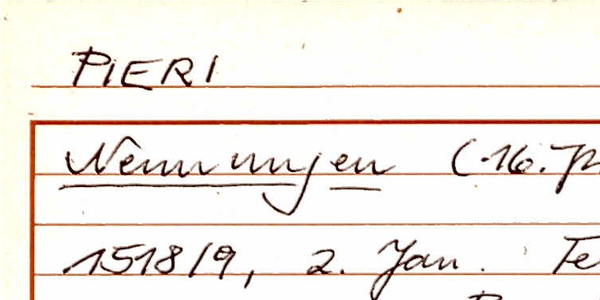 PIERI
Nennungen (16. Jh
1518/9, 2. Jan. Te